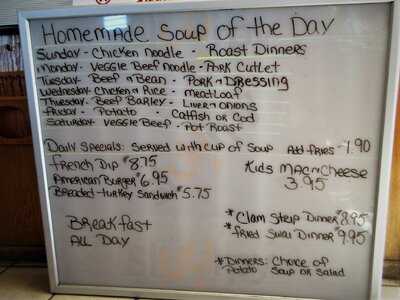 Homemade Soup of the Day
Sunday - Chicken Noodle - Roast Dinners
Monday - Veggie Beef Noodle - Pork Cutlet
Tuesday - Beef n Bean - Pork n Dressing
Wednesday - Chicken n Rice - Meatloaf
Thursday - Beef Barley - Liver n onions
Friday - Potato - Catfish or Cod
Saturday - Veggie Beef - Pot Roast
Daily Specials: Served with cup of Soup Add fries - 1.90
French Dip $8.75
American Burger $6.95
Breaded-turkey Sandwich $5.75
Kids Mac n Cheese
3.95
Breakfast
All Day
* Clam Strip Dinner 8.95
* fried Swai Dinner 9.95
* Dinners: Choice of
Potato Soup or Salad